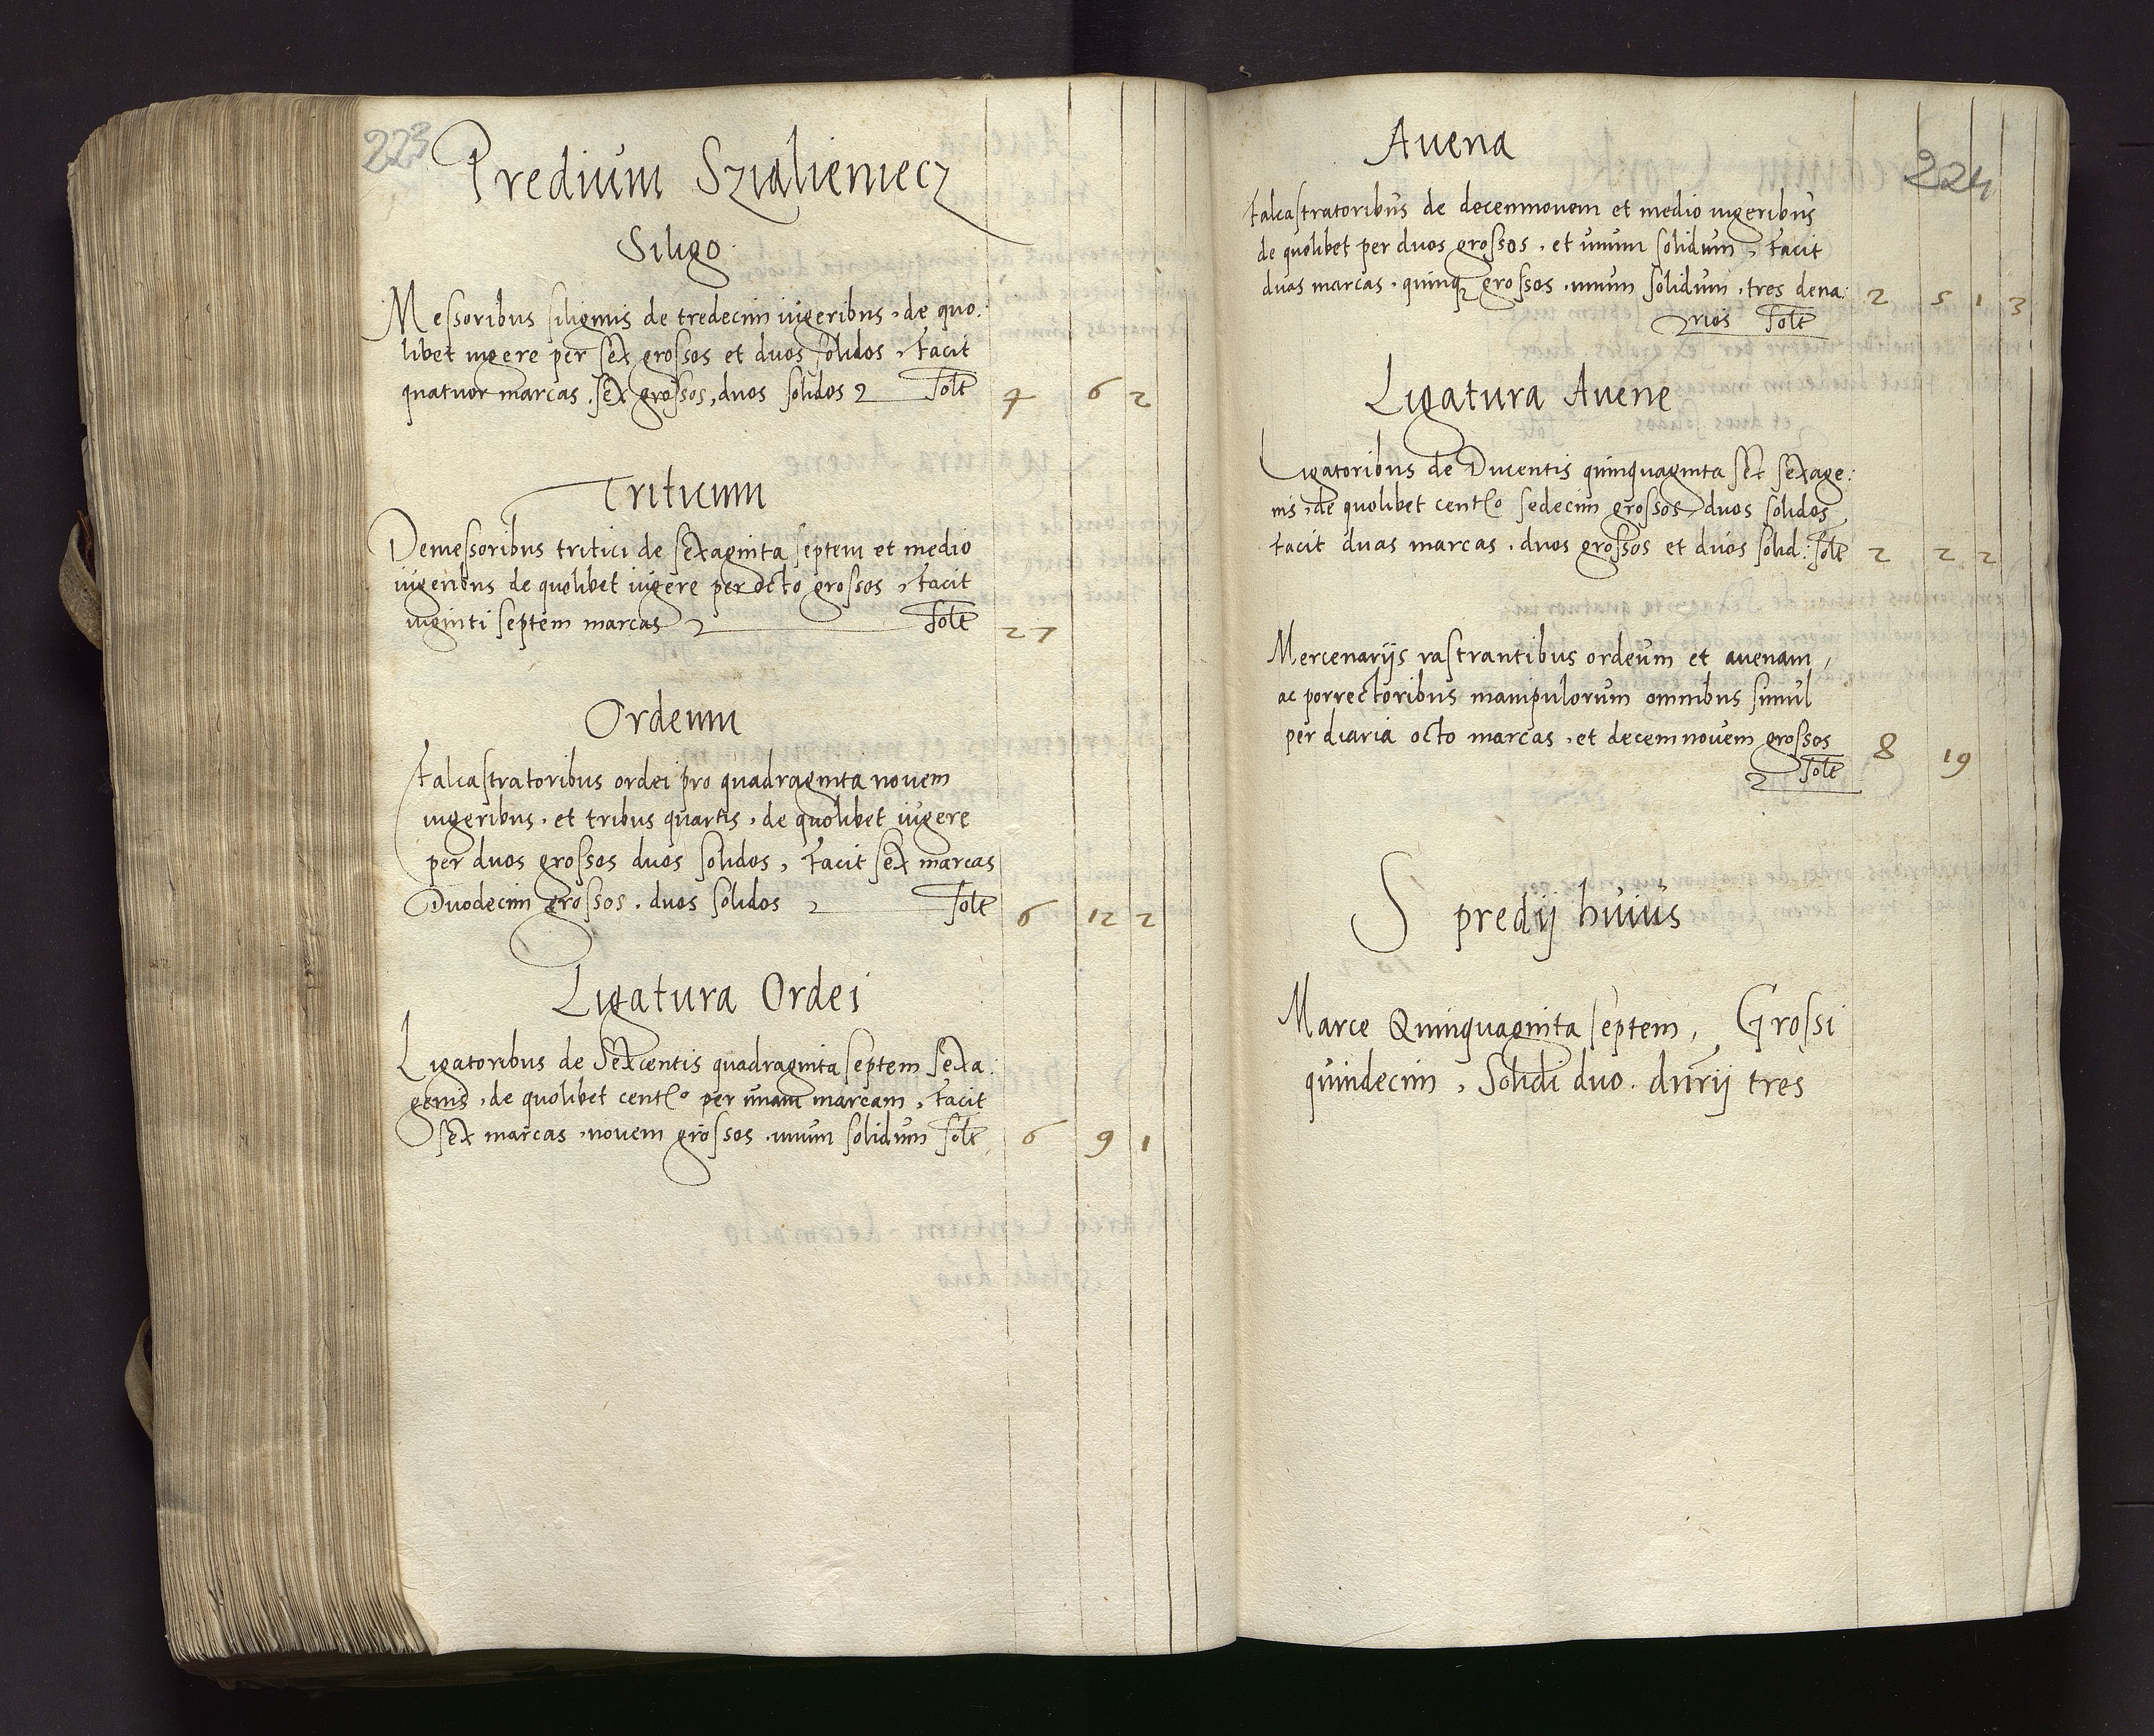 223
Predium Szialieniecz
Siligo
Messoribus siliginis de tredecim iugeribus, de quo:
libet iugere per sex grossos et duos solidos, facit
quatuor marcas, sex grossos, duos solidos solt 4 6 2
Triticum
Demessoribus tritici de sexaginta septem et medio
iugeribus de quolibet iugere per octo grossos, facit
viginti septem marcas solt 27
Ordeum
Falcastratoribus ordei pro quadraginta novem
iugeribus, et tribus quartis, de quolibet iugere
per duos grossos duos solidos, facit sex marcas
Duodecim grossos, duos solidos solt 6 12 2
Ligatura Ordei
Ligatoribus de Sexcentis quadraginta septem sexa:
genis, de quolibet cent.o per unam marcam, facit
sex marcas, novem grossos, unum solidum solt 6 9 1
224
Auena
Falcastratoribus de decemnovem et medio iugeribus
de quolibet per duos grossos, et unum solidum, facit
duas marcas, quinq grossos, unum solidum, tres dena: 2 5 1 3
rios solt
Ligatura Auene
Ligatoribus de Ducentis quinquaginta sex sexage:
nis, de quolibet cent.o sedecim grossos, duos solidos
facit duas marcas, duos grossos et duos solid: solt 2 2 2
Mercenarijs rastrantibus ordeum et auenam,
ac porrectoribus manipulorum omnibus simul
per diaria octo marcas, et decemnouem grossos 8 19
solt
S predij huius
Marce Quinquaginta septem, Grossi
quindecim, Solidi duo. dnrij tres